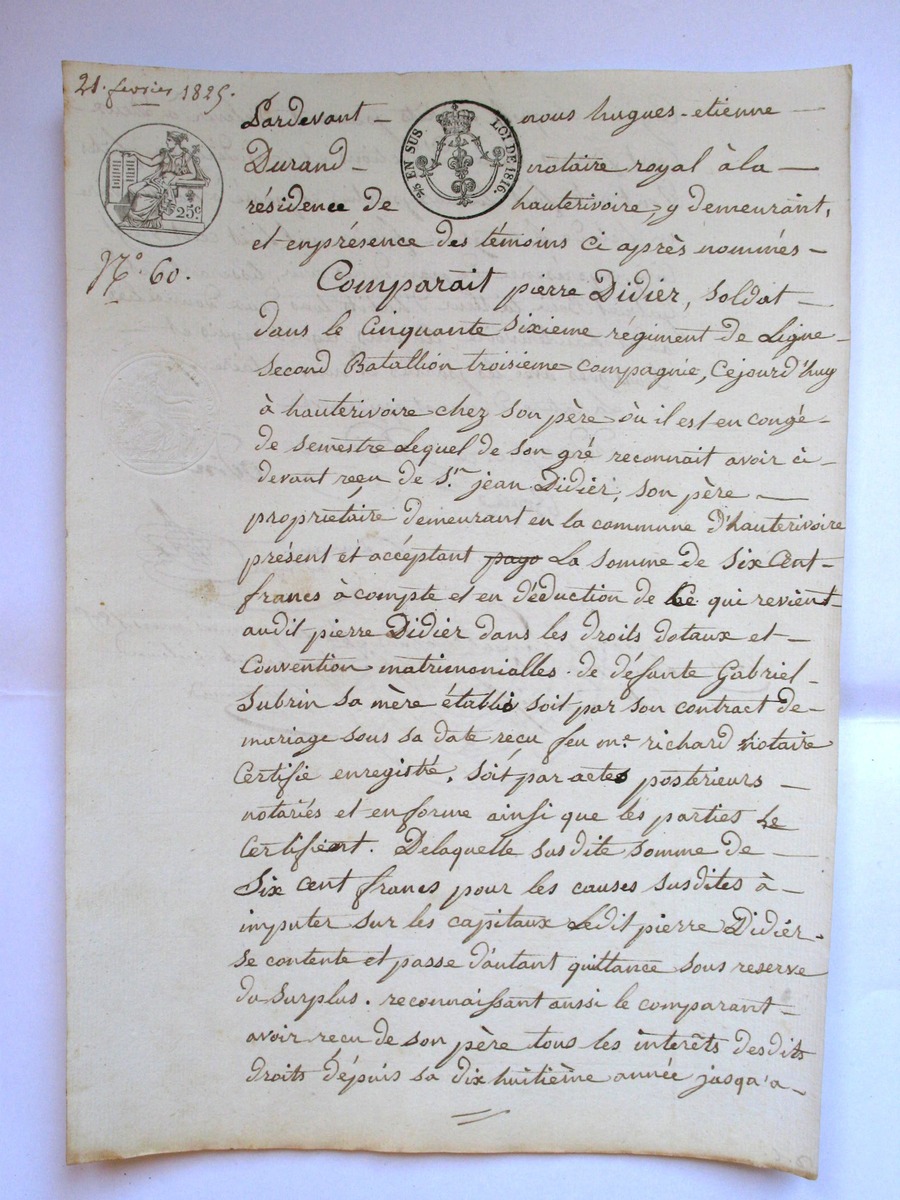 21. fevrier 1825.
25c
EN SUS LOI DE 1816.
N.° 60.
Pardevant nous hugues-etienne
Durand notaire royal à la
résidence de hauterivoire, y demeurant,
et en présence des témoins ci après nommés
Comparait pierre Didier, soldat
dans le Cinquante Sixieme régiment de Ligne
Second Batallion troisieme compagnie, Cejourd'huy
à hauterivoire chez son père où il est en congé
de semestre Lequel de son gré reconnait avoir ci
devant reçu de S.r jean Didier, son père
propriétaire demeurant en la commune d'hauterivoire
présent et accéptant la somme de six Cent
francs à compte et en déduction de ce qui revient
audit pierre Didier dans les droits dotaux et
Convention matrimonialles de défunte Gabriel
Subrin sa mère établis soit par son contract de
mariage sous sa date recu feu m.e richard notaire
Certifie enregistré, soit par actes postérieurs
notariés et en forme ainsi que les parties le
Certifient. Delaquelle susdite somme de
Six Cent francs pour les causes susdites à
imputer sur les capitaux Ledit pierre Didier
se contente et passe d'autant quittance sous reserve
du surplus. reconnaissant aussi le comparant
avoir recu de son père tous les interêts desdits
droits dépuis sa dix huitième année jusqu'a